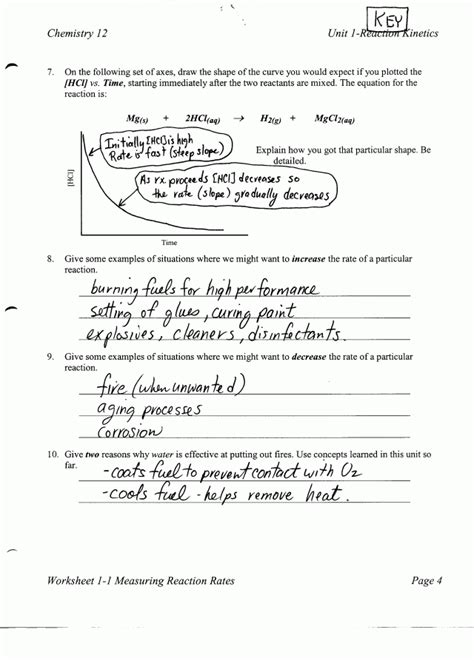 KEY
Chemistry 12 Unit 1-Reaction Kinetics
7. On the following set of axes, draw the shape of the curve you would expect if you plotted the
[HCl] vs. Time, starting immediately after the two reactants are mixed. The equation for the
reaction is:
Mg(s) + 2HCl(aq) → H2(g) + MgCl2(aq)
Initially [HCl] is high
Rate is fast (steep slope)
Explain how you got that particular shape. Be
detailed.
As rx proceeds [HCl] decreases so
the rate (slope) gradually decreases
[HCl]
Time
8. Give some examples of situations where we might want to increase the rate of a particular
reaction.
burning fuels for high performance
setting of glues, curing paint
explosives, cleaners, disinfectants.
9. Give some examples of situations where we might want to decrease the rate of a particular
reaction.
fire (when unwanted)
aging processes
Corrosion
10. Give two reasons why water is effective at putting out fires. Use concepts learned in this unit so
far.
-coats fuel to prevent contact with O2
-cools fuel - helps remove heat.
Worksheet 1-1 Measuring Reaction Rates Page 4